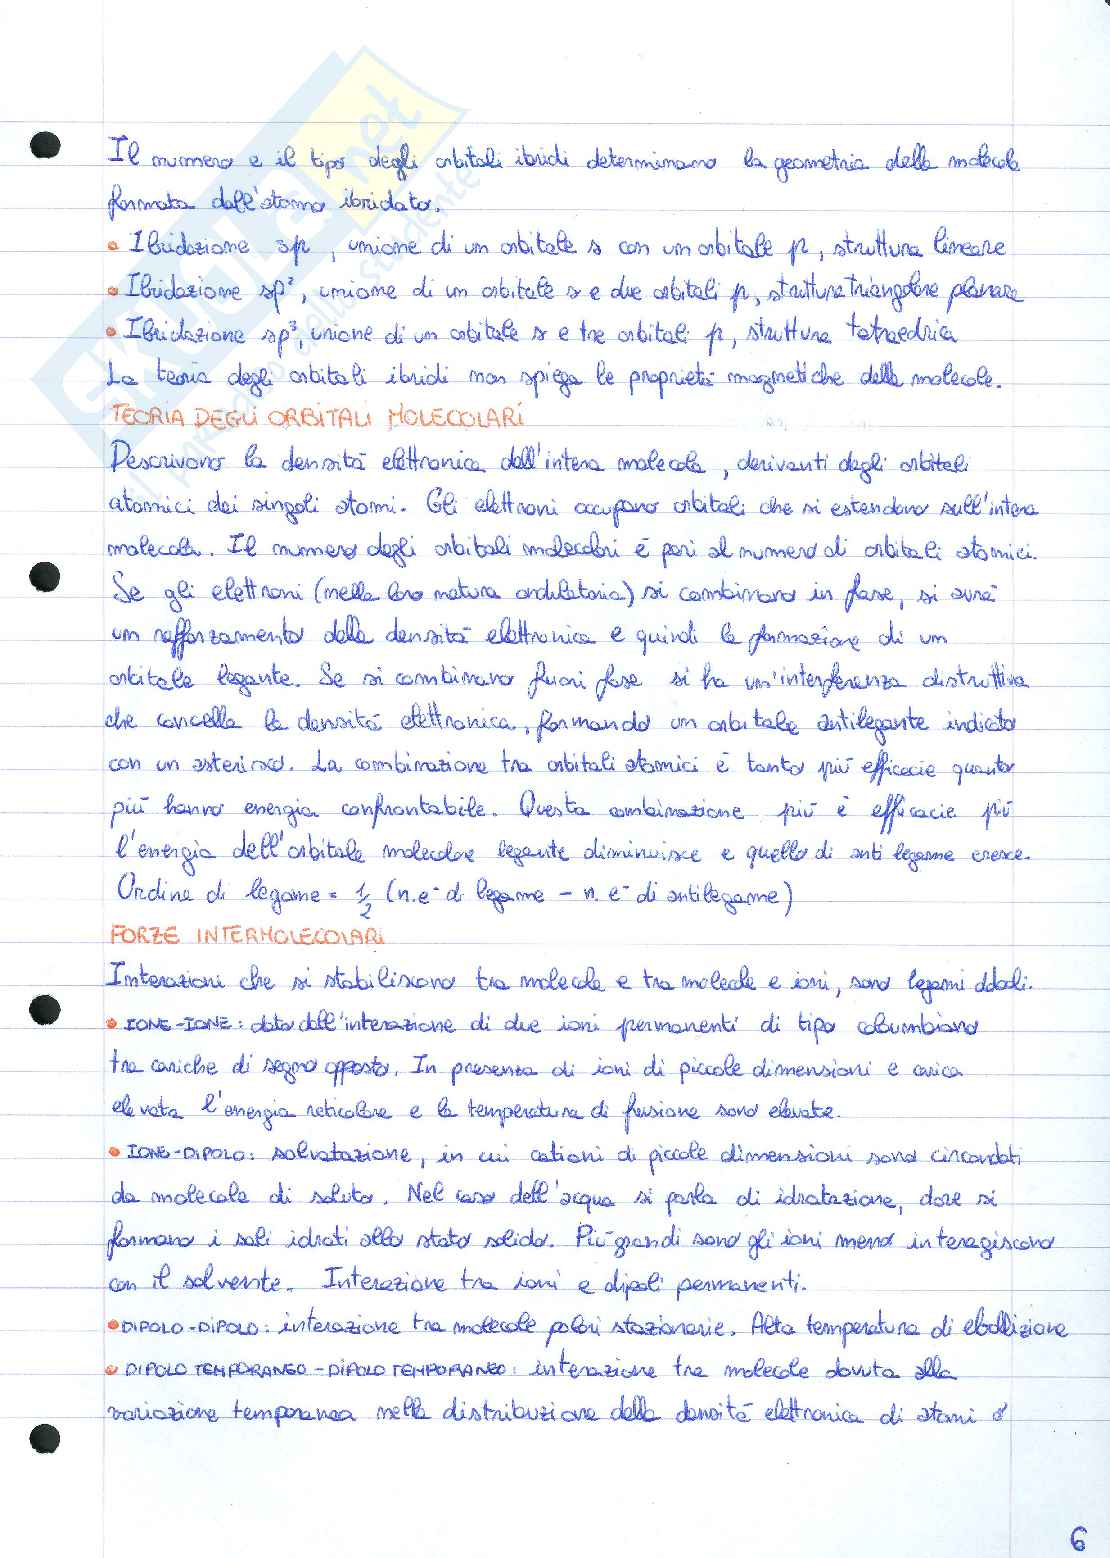 Il numero e il tipo degli orbitali ibridi determinano la geometria della molecola
formata dall'atomo ibridato.
• Ibridazione sp, unione di un orbitale s con un orbitale p, struttura lineare
• Ibridazione sp², unione di un orbitale s e due orbitali p, struttura triangolare planare
• Ibridazione sp³, unione di un orbitale s e tre orbitali p, struttura tetraedrica
La teoria degli orbitali ibridi non spiega le proprietà magnetiche delle molecole.
TEORIA DEGLI ORBITALI MOLECOLARI
Descrivono la densità elettronica dell'intera molecola, derivanti dagli orbitali
atomici dei singoli atomi. Gli elettroni occupano orbitali che si estendono sull'intera
molecola. Il numero degli orbitali molecolari è pari al numero di orbitali atomici.
Se gli elettroni (nella loro natura ondulatoria) si combinano in fase, si avrà
un rafforzamento della densità elettronica e quindi la formazione di un
orbitale legante. Se si combinano fuori fase si ha un'interferenza distruttiva
che cancella la densità elettronica, formando un orbitale antilegante indicato
con un asterisco. La combinazione tra orbitali atomici è tanto più efficacie quanto
più hanno energia confrontabile. Questa combinazione più è efficacie più
l'energia dell'orbitale molecolare legante diminuisce e quello di anti legame cresce.
Ordine di legame = 1/2 (n.e⁻ di legame - n. e⁻ di antilegame)
FORZE INTERMOLECOLARI
Interazioni che si stabiliscono tra molecole e tra molecole e ioni, sono legami deboli.
• IONE-IONE: data dall'interazione di due ioni permanenti di tipo coloumbiano
tra cariche di segno opposto. In presenza di ioni di piccole dimensioni e carica
elevata l'energia reticolare e la temperatura di fusione sono elevate.
• IONE-DIPOLO: solvatazione, in cui cationi di piccole dimensioni sono circondati
da molecole di soluto. Nel caso dell'acqua si parla di idratazione, dove si
formano i sali idrati allo stato solido. Più grandi sono gli ioni meno interagiscono
con il solvente. Interazione tra ioni e dipoli permanenti.
• DIPOLO-DIPOLO: interazione tra molecole polari stazionarie. Alta temperatura di ebollizione
• DIPOLO TEMPORANEO-DIPOLO TEMPORANEO: interazione tra molecole dovuta alla
variazione temporanea nella distribuzione della densità elettronica di atomi o
6
SKUOLA.net
il paradiso dello studente